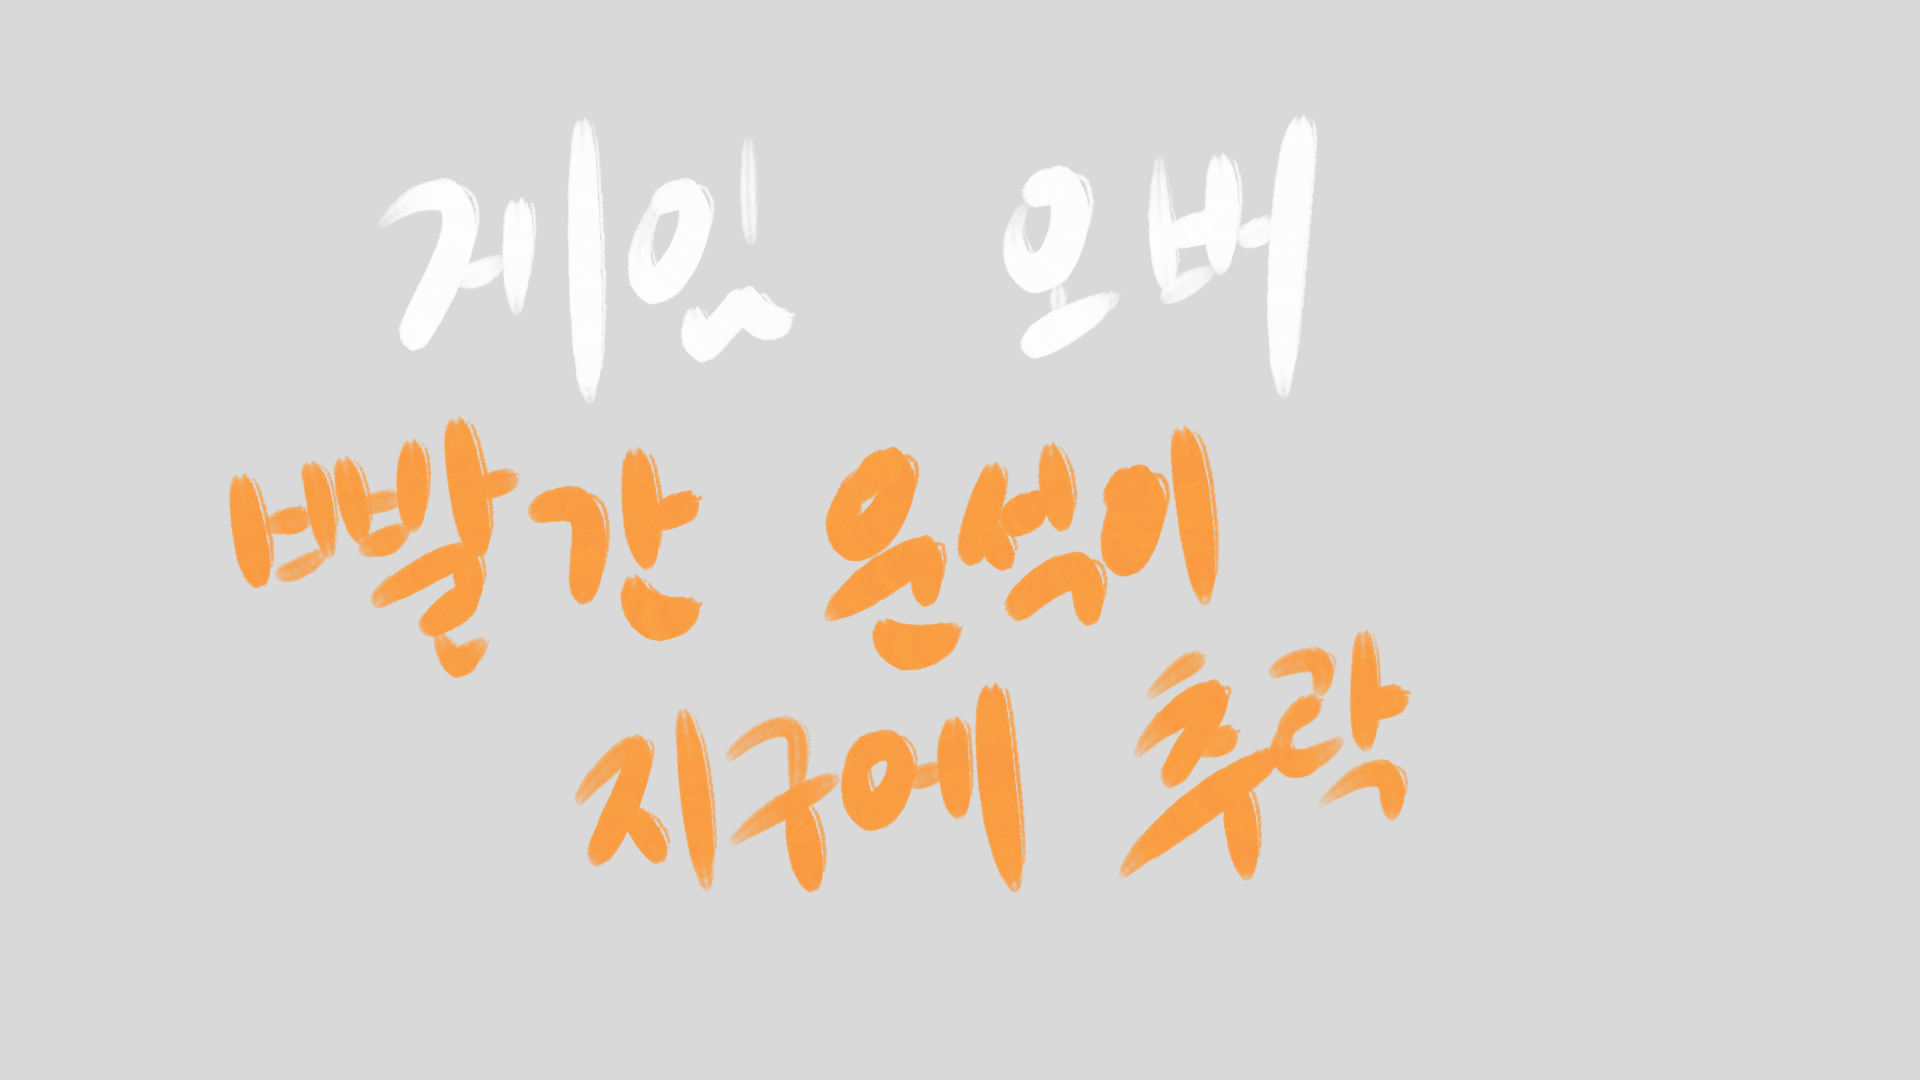 게임 오버
빨간 운석이
지구에 추락